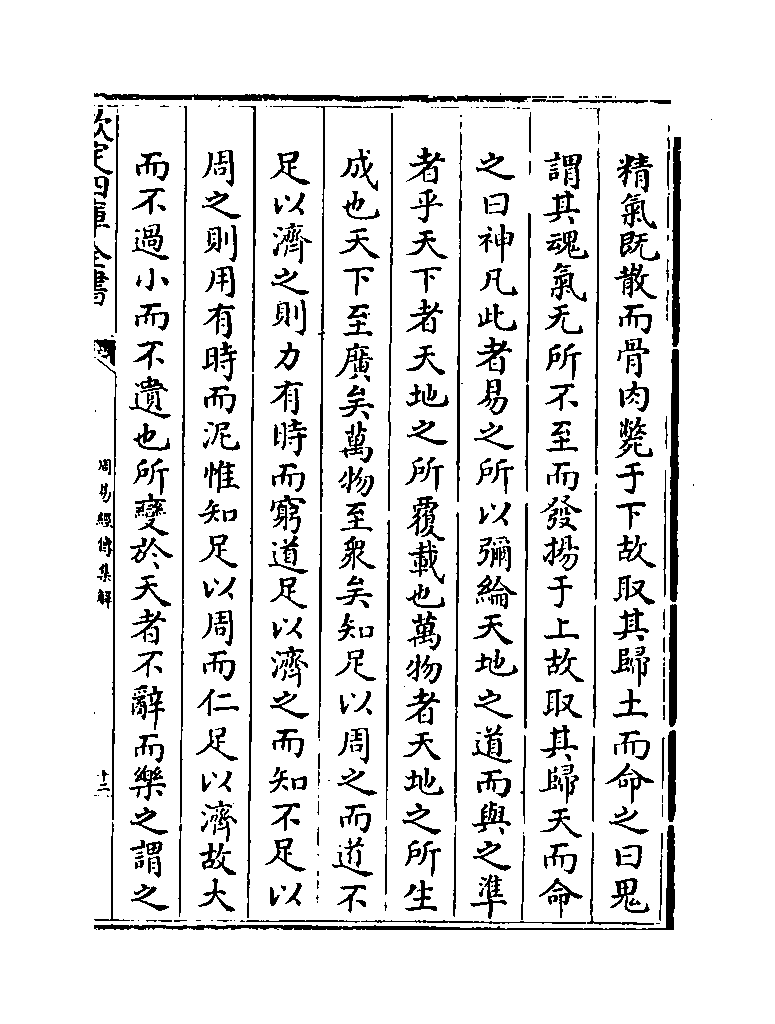 精氣既散而骨肉斃于下故取其歸土而命之曰鬼
謂其魂氣无所不至而發揚于上故取其歸天而命
之曰神凡此者易之所以彌綸天地之道而與之準
者乎天下者天地之所覆載也萬物者天地之所生
成也天下至廣矣萬物至衆矣知足以周之而道不
足以濟之則力有時而窮道足以濟之而知不足以
周之則用有時而泥惟知足以周而仁足以濟故大
而不過小而不遺也所變於天者不辭而樂之謂之
欽定四庫全書
周易經傳集解
十二